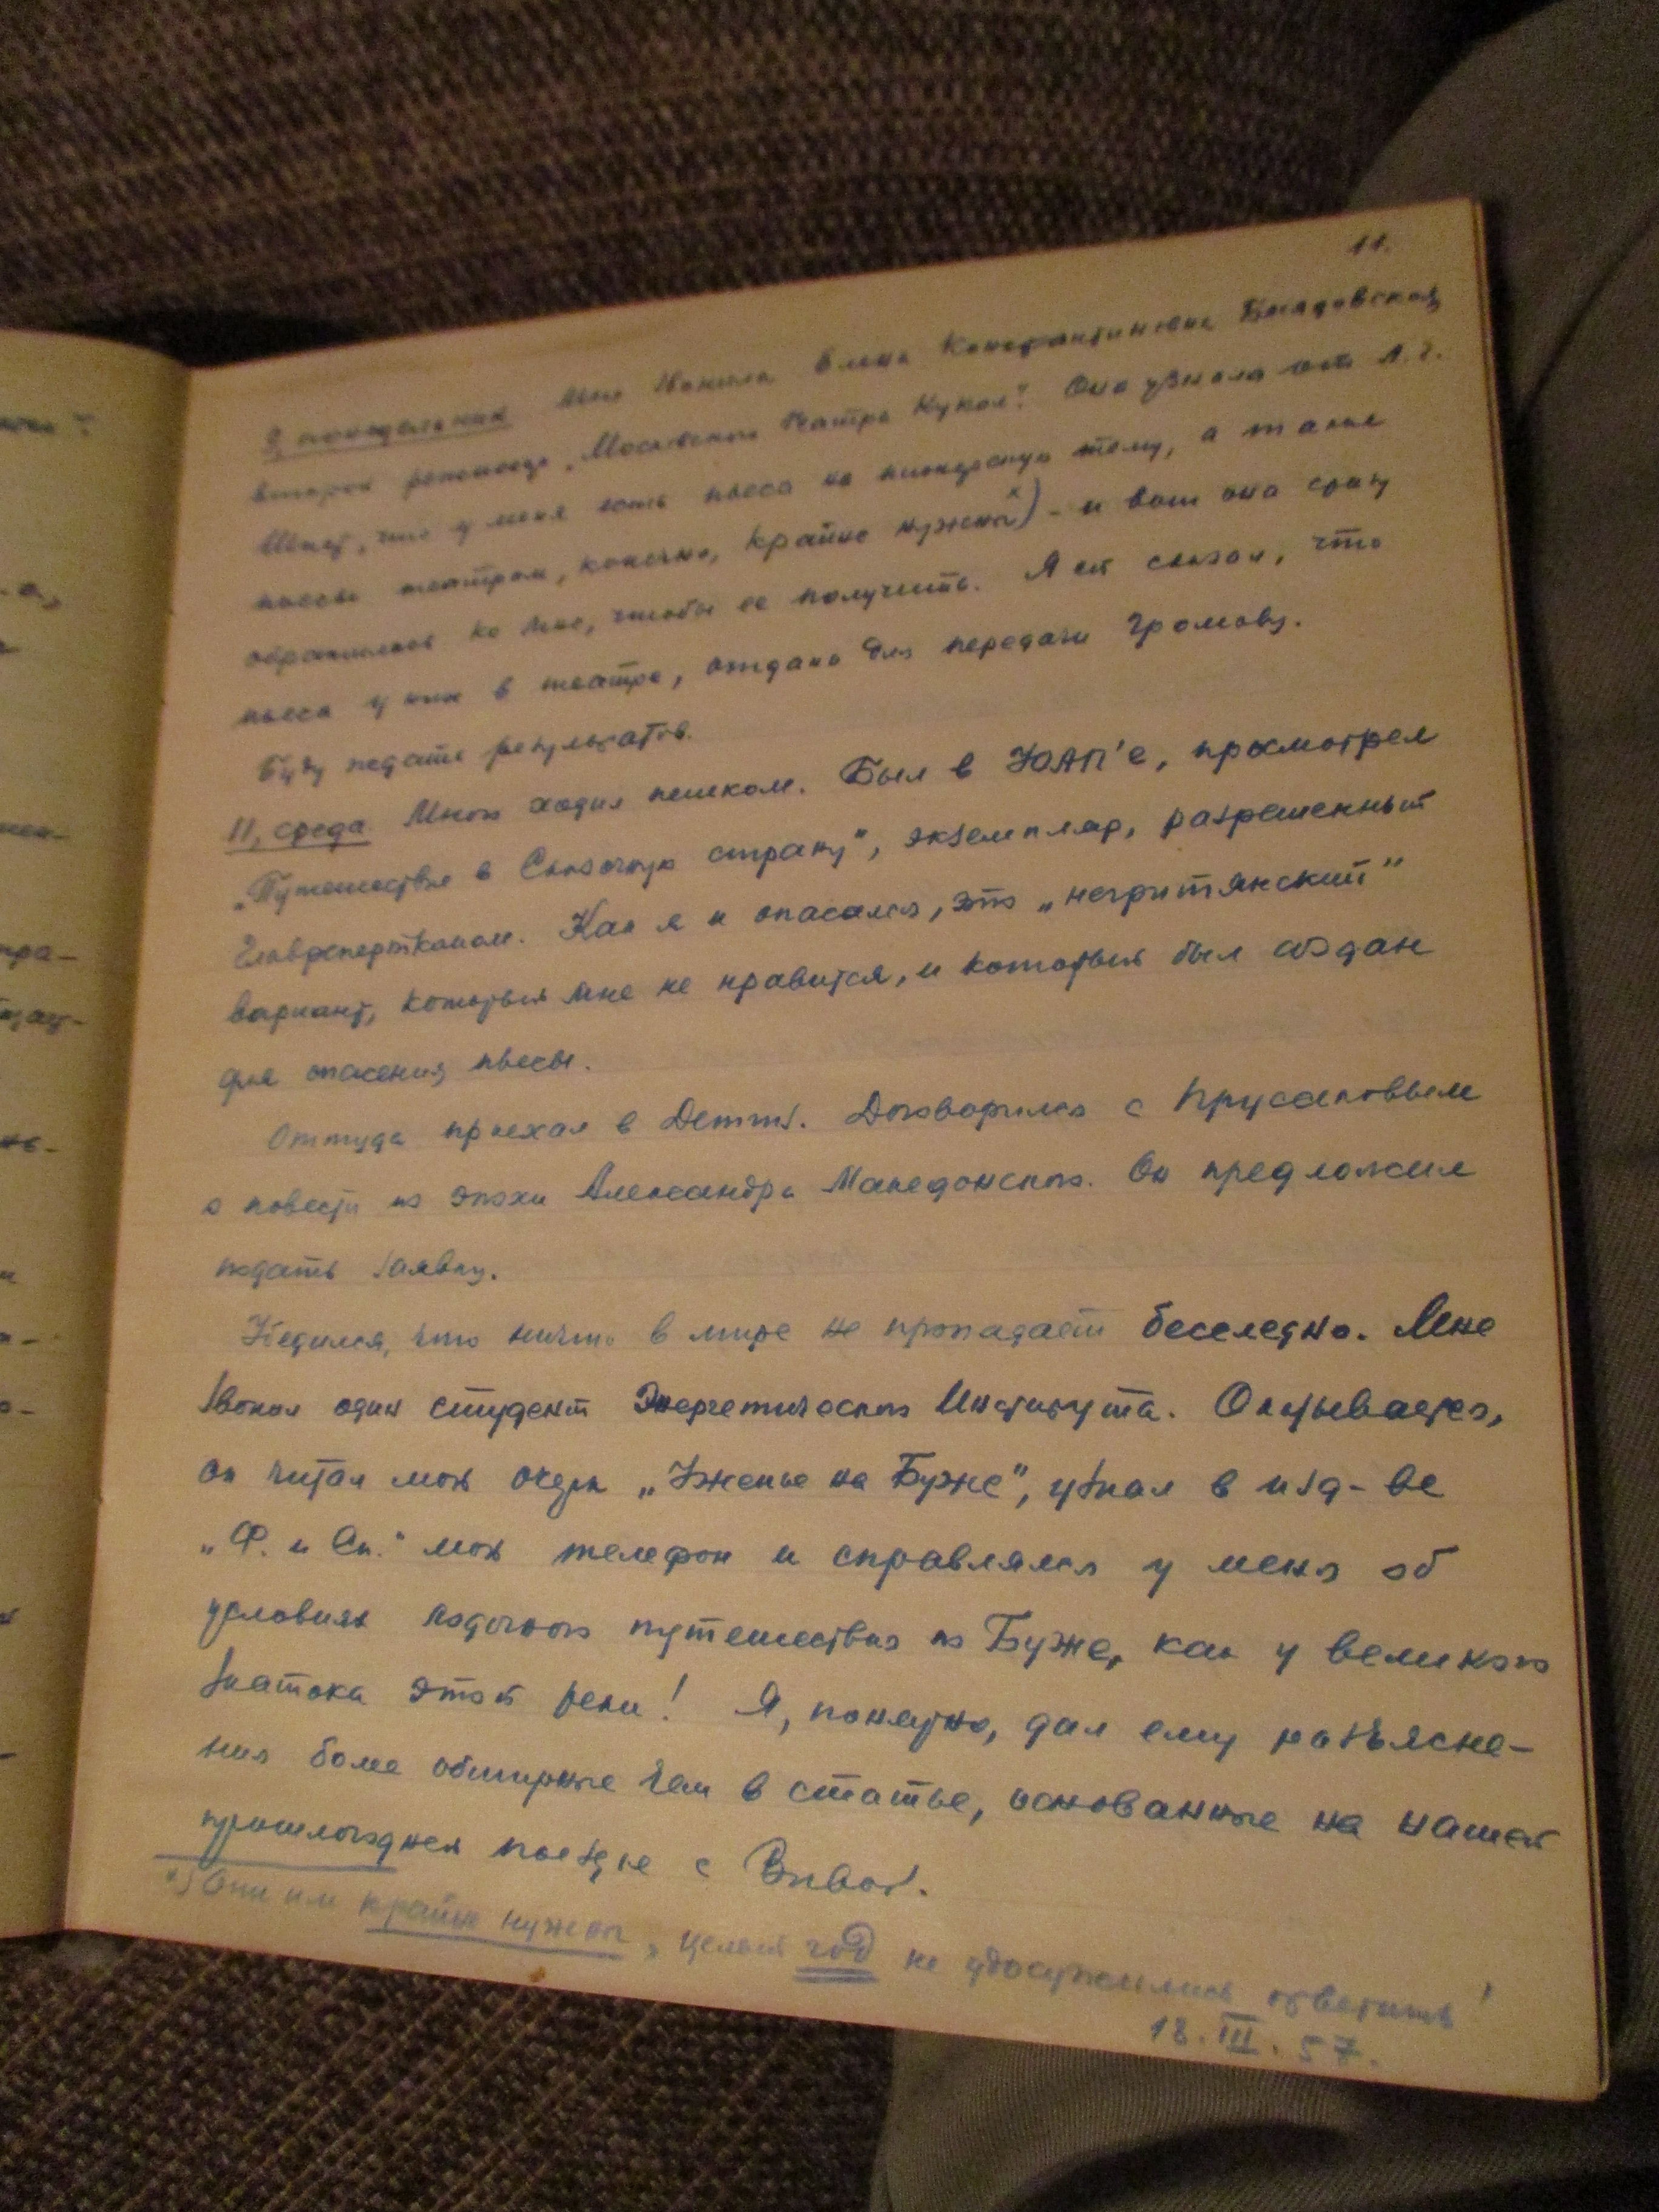 11.
9, понедельник Мне звонила Елена Константиновна
второй режиссер „Московского Театра Кукол". Она узнала от
что у меня есть пьеса на пионерскую тему, а такие
пьесы театром, конечно, крайне нужны х) – и вот она сразу
обратилась ко мне, чтобы ее получить. Я ей сказал, что
пьеса у них в театре, отдана для передачи Громову.
Буду ждать результатов.
11, среда. Много ходил пешком. Был в ЮАП'е, просмотрел
„Путешествие в Сказочную страну", экземпляр, разрешенный
Главреперткомом. Как я и опасался, это „негритянский"
вариант, который мне не нравится, и который был создан
для спасения пьесы.
Оттуда приехал в Детгиз. Договорился с Прусаковым
о повести из эпохи Александра Македонского. Он предложил
подать заявку.
Убедился, что ничто в мире не пропадает бесследно. Мне
звонил один студент Энергетического Института. Оказывается,
он читал мой очерк „Уженье на Буже", узнал в изд-ве
„Ф. и Сп." мой телефон и справлялся у меня об
условиях лодочного путешествия по Буже, как у великого
знатока этой реки! Я, понятно, дал ему разъясне-
ния более обширные чем в статье, основанные на нашей
прошлогодней поездке с
х) Они им крайне нужны, целый год не удосужились ответить!
18.III.57.